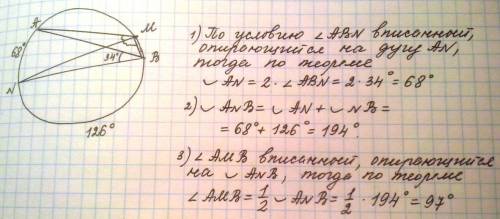 A
M
68°
34°
B
N
126°
1) По условию ∠ABN вписанный,
опирающийся на дугу AN,
тогда по теореме
◡AN = 2 · ∠ABN = 2 · 34° = 68°
2) ◡ANB = ◡AN + ◡NB =
= 68° + 126° = 194°.
3) ∠AMB вписанный, опирающийся
на ◡ANB, тогда по теореме
∠AMB = 1/2 ◡ANB = 1/2 · 194° = 97°